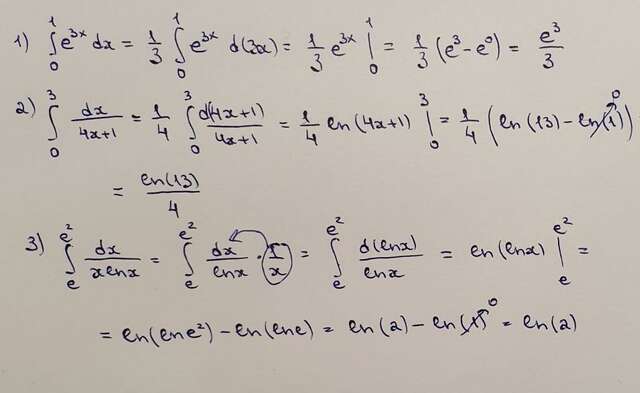 1) ∫₀¹ e³ˣ dx = 1/3 ∫₀¹ e³ˣ d(3x) = 1/3 e³ˣ |₀¹ = 1/3 (e³ - e⁰) = e³/3
2) ∫₀³ dx/(4x+1) = 1/4 ∫₀³ d(4x+1)/(4x+1) = 1/4 ln(4x+1) |₀³ = 1/4 (ln(13) - ln(1)) 0
= ln(13)/4
3) ∫ₑ^(e²) dx/(x ln x) = ∫ₑ^(e²) dx/(ln x) · 1/x = ∫ₑ^(e²) d(ln x)/(ln x) = ln(ln x) |ₑ^(e²) =
= ln(ln e²) - ln(ln e) = ln(2) - ln(1) 0 = ln(2)